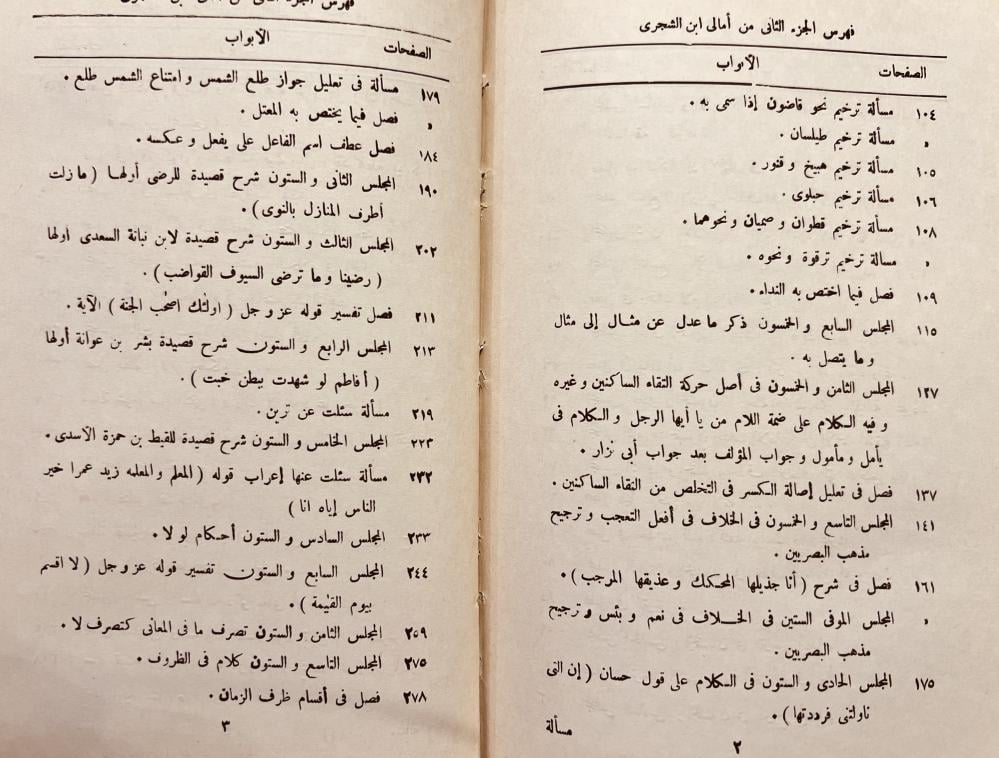 فهرس الجزء الثانى من أمالى ابن الشجرى
الصفحات الأبواب
١٠٤ مسألة ترخيم نحو قاضون إذا سمى به .
» مسألة ترخيم طيلسان .
١٠٥ مسألة ترخيم هبيخ و قنور .
١٠٦ مسألة ترخيم حبلوى .
١٠٨ مسألة ترخيم قطوان و صميان و نحوهما .
» مسالة ترخيم ترقوة و نحوه .
١٠٩ فصل فيما اختص به النداء .
١١٥ المجلس السابع و الخمسون ذكر ما عدل عن مثال إلى مثال
و ما يتصل به .
١٢٧ المجلس الثامن و الخمسون فى أصل حركة التقاء الساكنين و غيره
و فيه الكلام على ضمة اللام من يا أيها الرجل و الكلام فى
يأمل و مأمول و جواب المؤلف بعد جواب أبى نزار .
١٣٧ فصل فى تعليل إصالة الكسر فى التخلص من التقاء الساكنين .
١٤١ المجلس التاسع و الخمسون فى الخلاف فى أفعل التعجب و ترجيح
مذهب البصريين .
١٦١ فصل فى شرح ( أنا جذيلها المحكك و عذيقها المرجب ) .
» المجلس الموفى الستين فى الخلاف فى نعم و بئس و ترجيح
مذهب البصريين .
١٧٥ المجلس الحادى و الستون فى الكلام على قول حسان ( إن التى
ناولتنى فرددتها ) .
مسألة
٢
الصفحات الأبواب
١٧٩ مسألة فى تعليل جواز طلع الشمس و امتناع الشمس طلع .
» فصل فيما يختص به المعتل .
١٨٤ فصل عطف اسم الفاعل على يفعل و عكسه .
١٩٠ المجلس الثانى و الستون شرح قصيدة للرضى أولها ( ما زلت
أطرف المنازل بالنوى ) .
٢٠٢ المجلس الثالث و الستون شرح قصيدة لابن نباتة السعدى أولها
( رضينا و ما ترضى السيوف القواضب ) .
٢١١ فصل تفسير قوله عز و جل ( اولئك اصحب الجنة ) الآية .
٢١٣ المجلس الرابع و الستون شرح قصيدة بشر بن عوانة أولها
( أفاطم لو شهدت ببطن خبت ) .
٢١٩ مسألة سئلت عن ترين .
٢٢٣ المجلس الخامس و الستون شرح قصيدة للقيط بن حمزة الأسدى .
٢٣٢ مسألة سئلت عنها إعراب قوله ( المعلم و المعلمه زيد عمرا خير
الناس إياه انا )
٢٣٣ المجلس السادس و الستون أحكام لو لا .
٢٤٤ المجلس السابع و الستون تفسير قوله عز و جل ( لا اقسم
بيوم القيمة ) .
٢٥٩ المجلس الثامن و الستون تصرف ما فى المعانى كتصرف لا .
٢٧٥ المجلس التاسع و الستون كلام فى الظروف .
٢٧٨ فصل فى أقسام ظرف الزمان .
٣